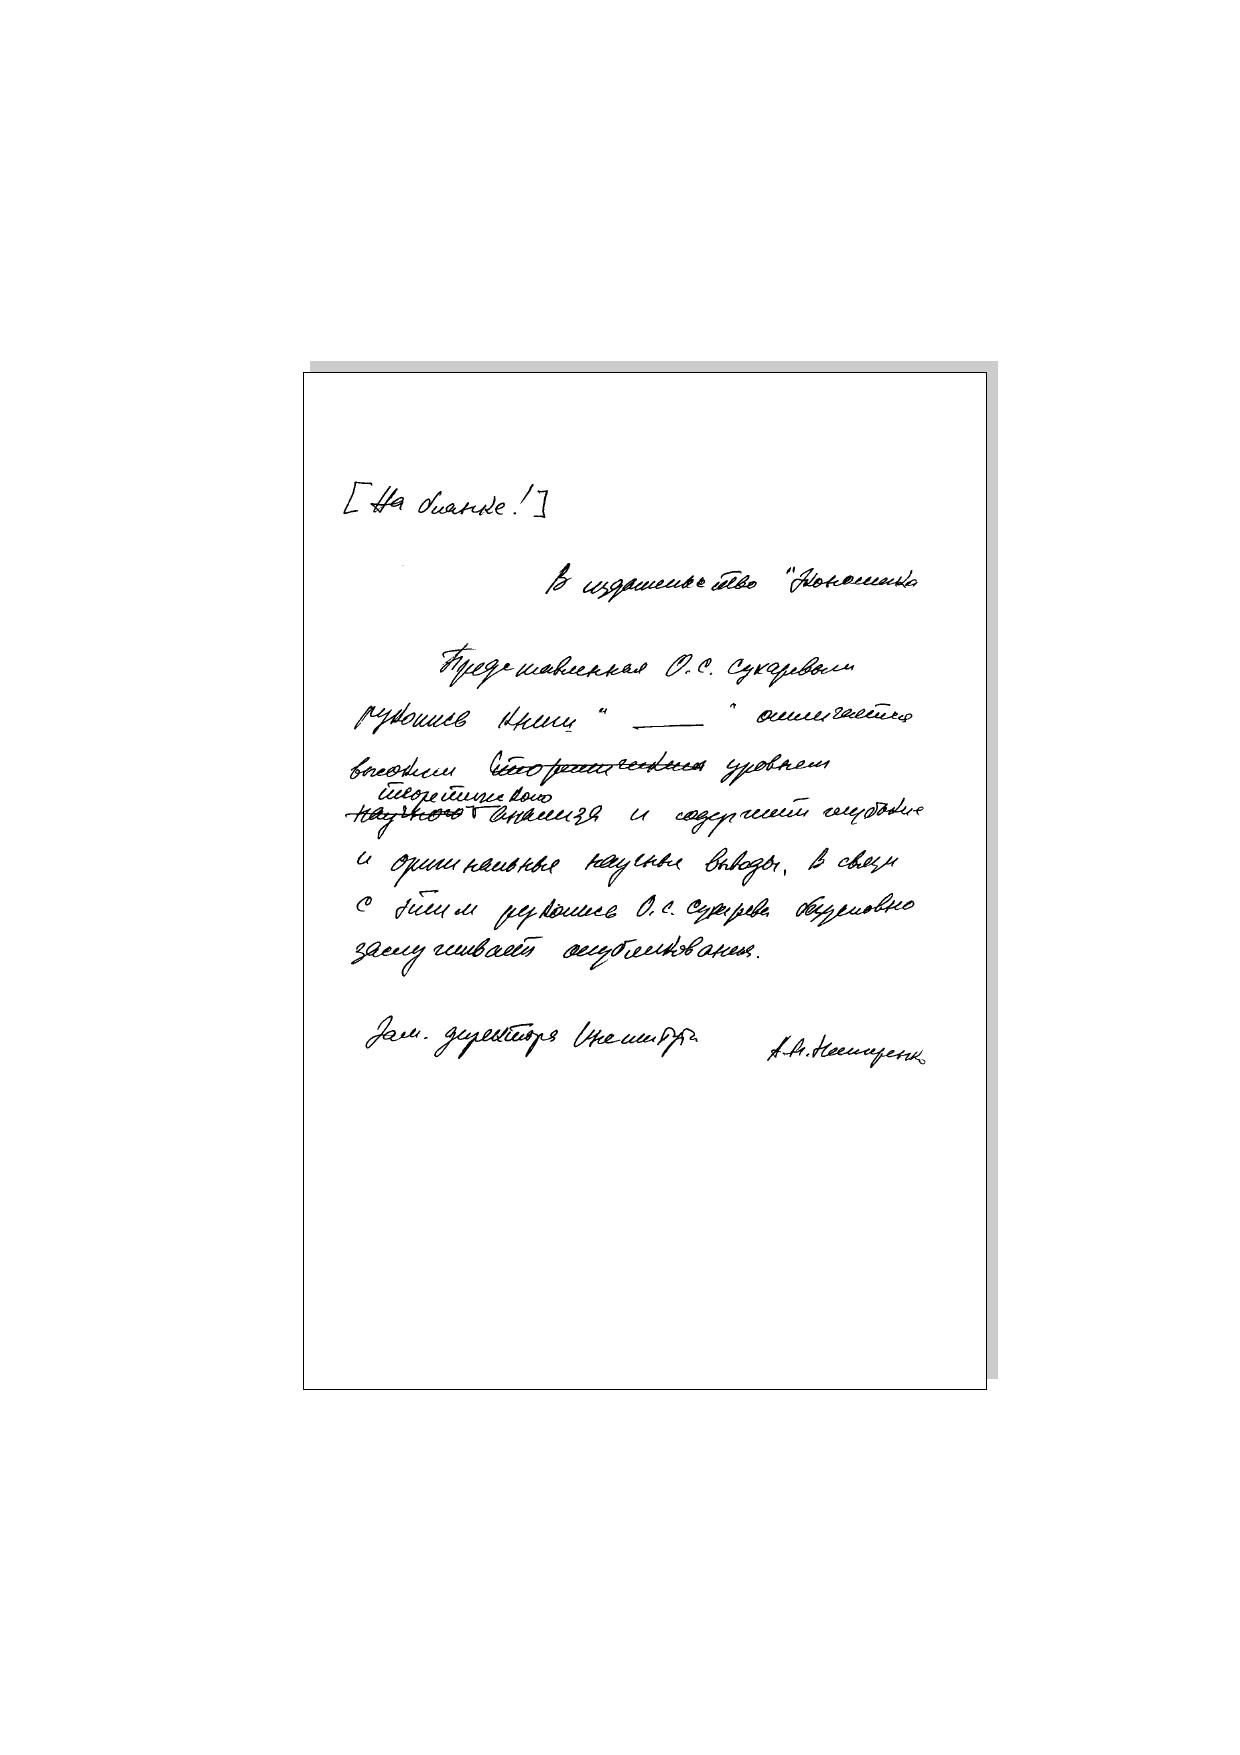 [На бланке!]
В издательство "Экономика
Представленная О.С. Сухаревым
рукопись книги " ——— " отличается
высоким теоретическим уровнем
теоретического
научного анализа и содержит глубокие
и оригинальные научные выводы. В связи
с этим рукопись О.С. Сухарева безусловно
заслуживает опубликования.
Зам. директора Института
А.Н. Нестеренко